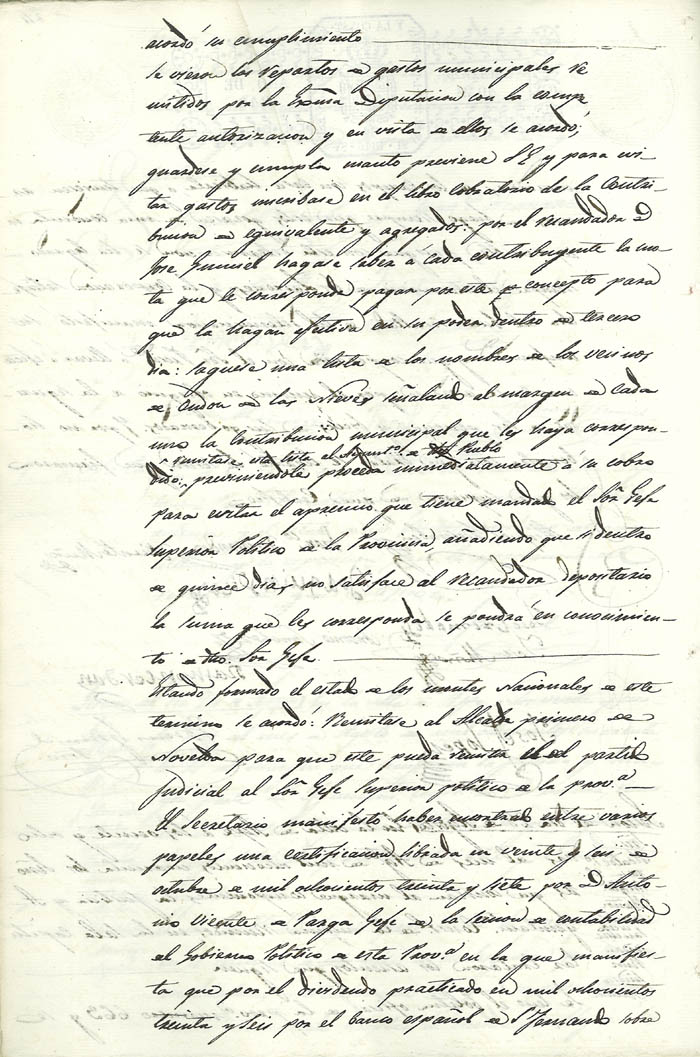 acordó su cumplimiento
Se vieron los repartos de gastos municipales re
mitidos por la Exma Diputacion con la compe
tente autorizacion y en vista de ellos se acordó:
guardese y cumpla cuanto previene S E y para evi-
tar gastos inscribase en el libro cobratorio de la Contri-
bucion de equivalente y agregados: por el recaudador D
Jose hagase saber á cada contribuyente la cuo-
ta que le corresponde pagar por este concepto para
que la hagan efectiva en su poder dentro de tercero
dia: saquese una lista de los nombres de los vecinos
de Ondon de las Nieves señalando al margen de cada
uno la Contribucion municipal que les haya correspon-
remitase esta lista al Ayunt.º de Pueblo
dido: previniendole proceda inmediatamente á su cobro
para evitar el apremio que tiene mandado el Sor Gefe
Superior Politico de la Provincia, añadiendo que si dentro
de quince dias no satisface al recaudador depositario
la suma que les corresponda se pondrá en conocimien-
to de dho. Sor Gefe
Estando formado el estado de los montes Nacionales de este
termino se acordó: Remitase al Alcalde primero de
Novelda para que este pueda remitir el del partido
judicial al Sor Gefe Superior politico de la prov.ª
El Secretario manifestó haber encontrado entre varios
papeles una certificacion librada en veinte y seis de
octubre de mil ochocientos treinta y siete por D Anto-
nio Vicente de Parga Gefe de la seccion de contabilidad
del Gobierno Politico de esta Prov.ª en la que manifies-
ta que por el dividendo practicado en mil ochocientos
treinta y seis por el banco español de S Fernando sobre